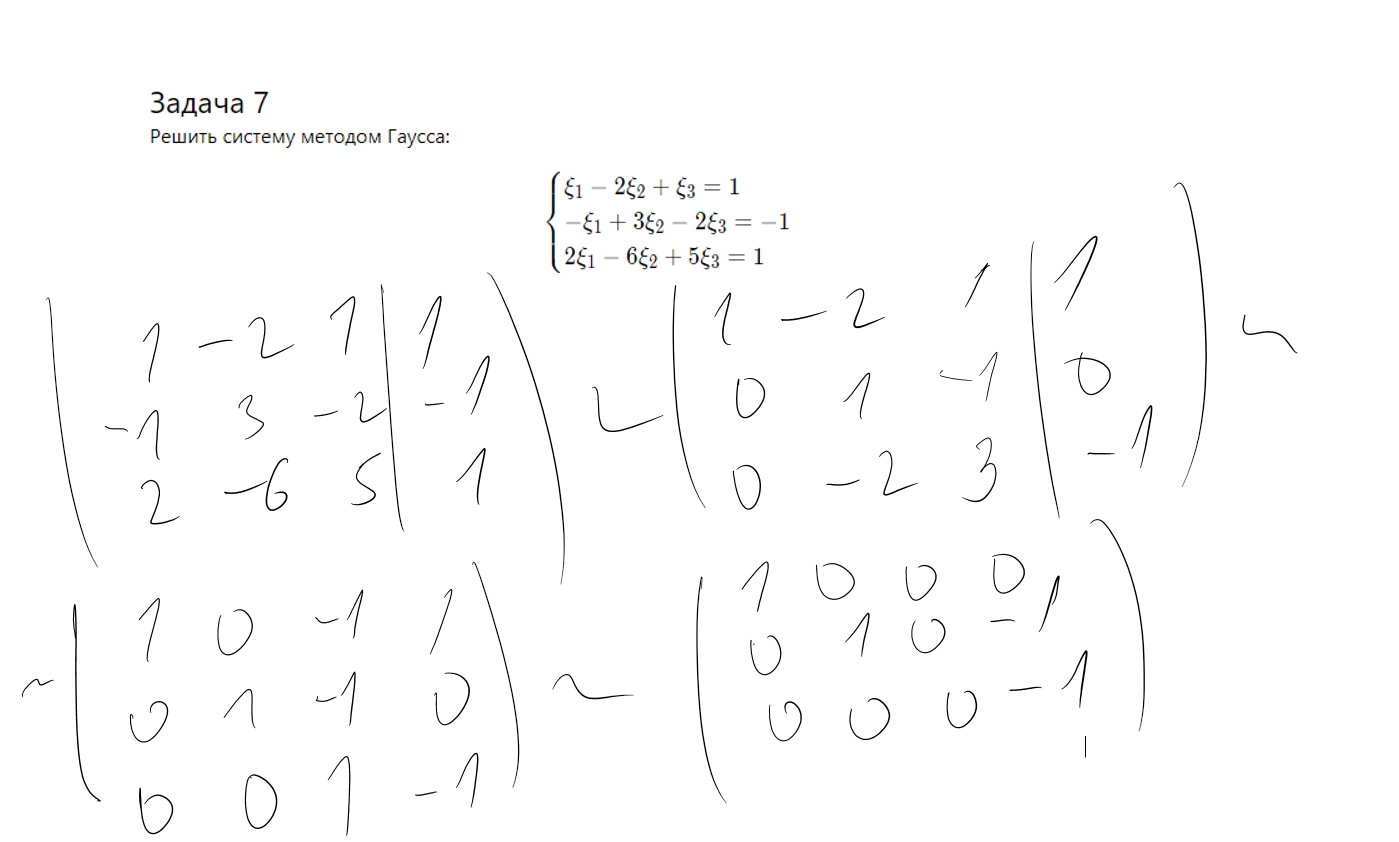 Задача 7
Решить систему методом Гаусса:
ξ₁ − 2ξ₂ + ξ₃ = 1
−ξ₁ + 3ξ₂ − 2ξ₃ = −1
2ξ₁ − 6ξ₂ + 5ξ₃ = 1
( 1 −2 1 | 1 )
( −1 3 −2 | −1 )
( 2 −6 5 | 1 )
~
( 1 −2 1 | 1 )
( 0 1 −1 | 0 )
( 0 −2 3 | −1 )
~
~
( 1 0 −1 1 )
( 0 1 −1 0 )
( 0 0 1 −1 )
~
( 1 0 0 0 )
( 0 1 0 −1 )
( 0 0 0 −1 )